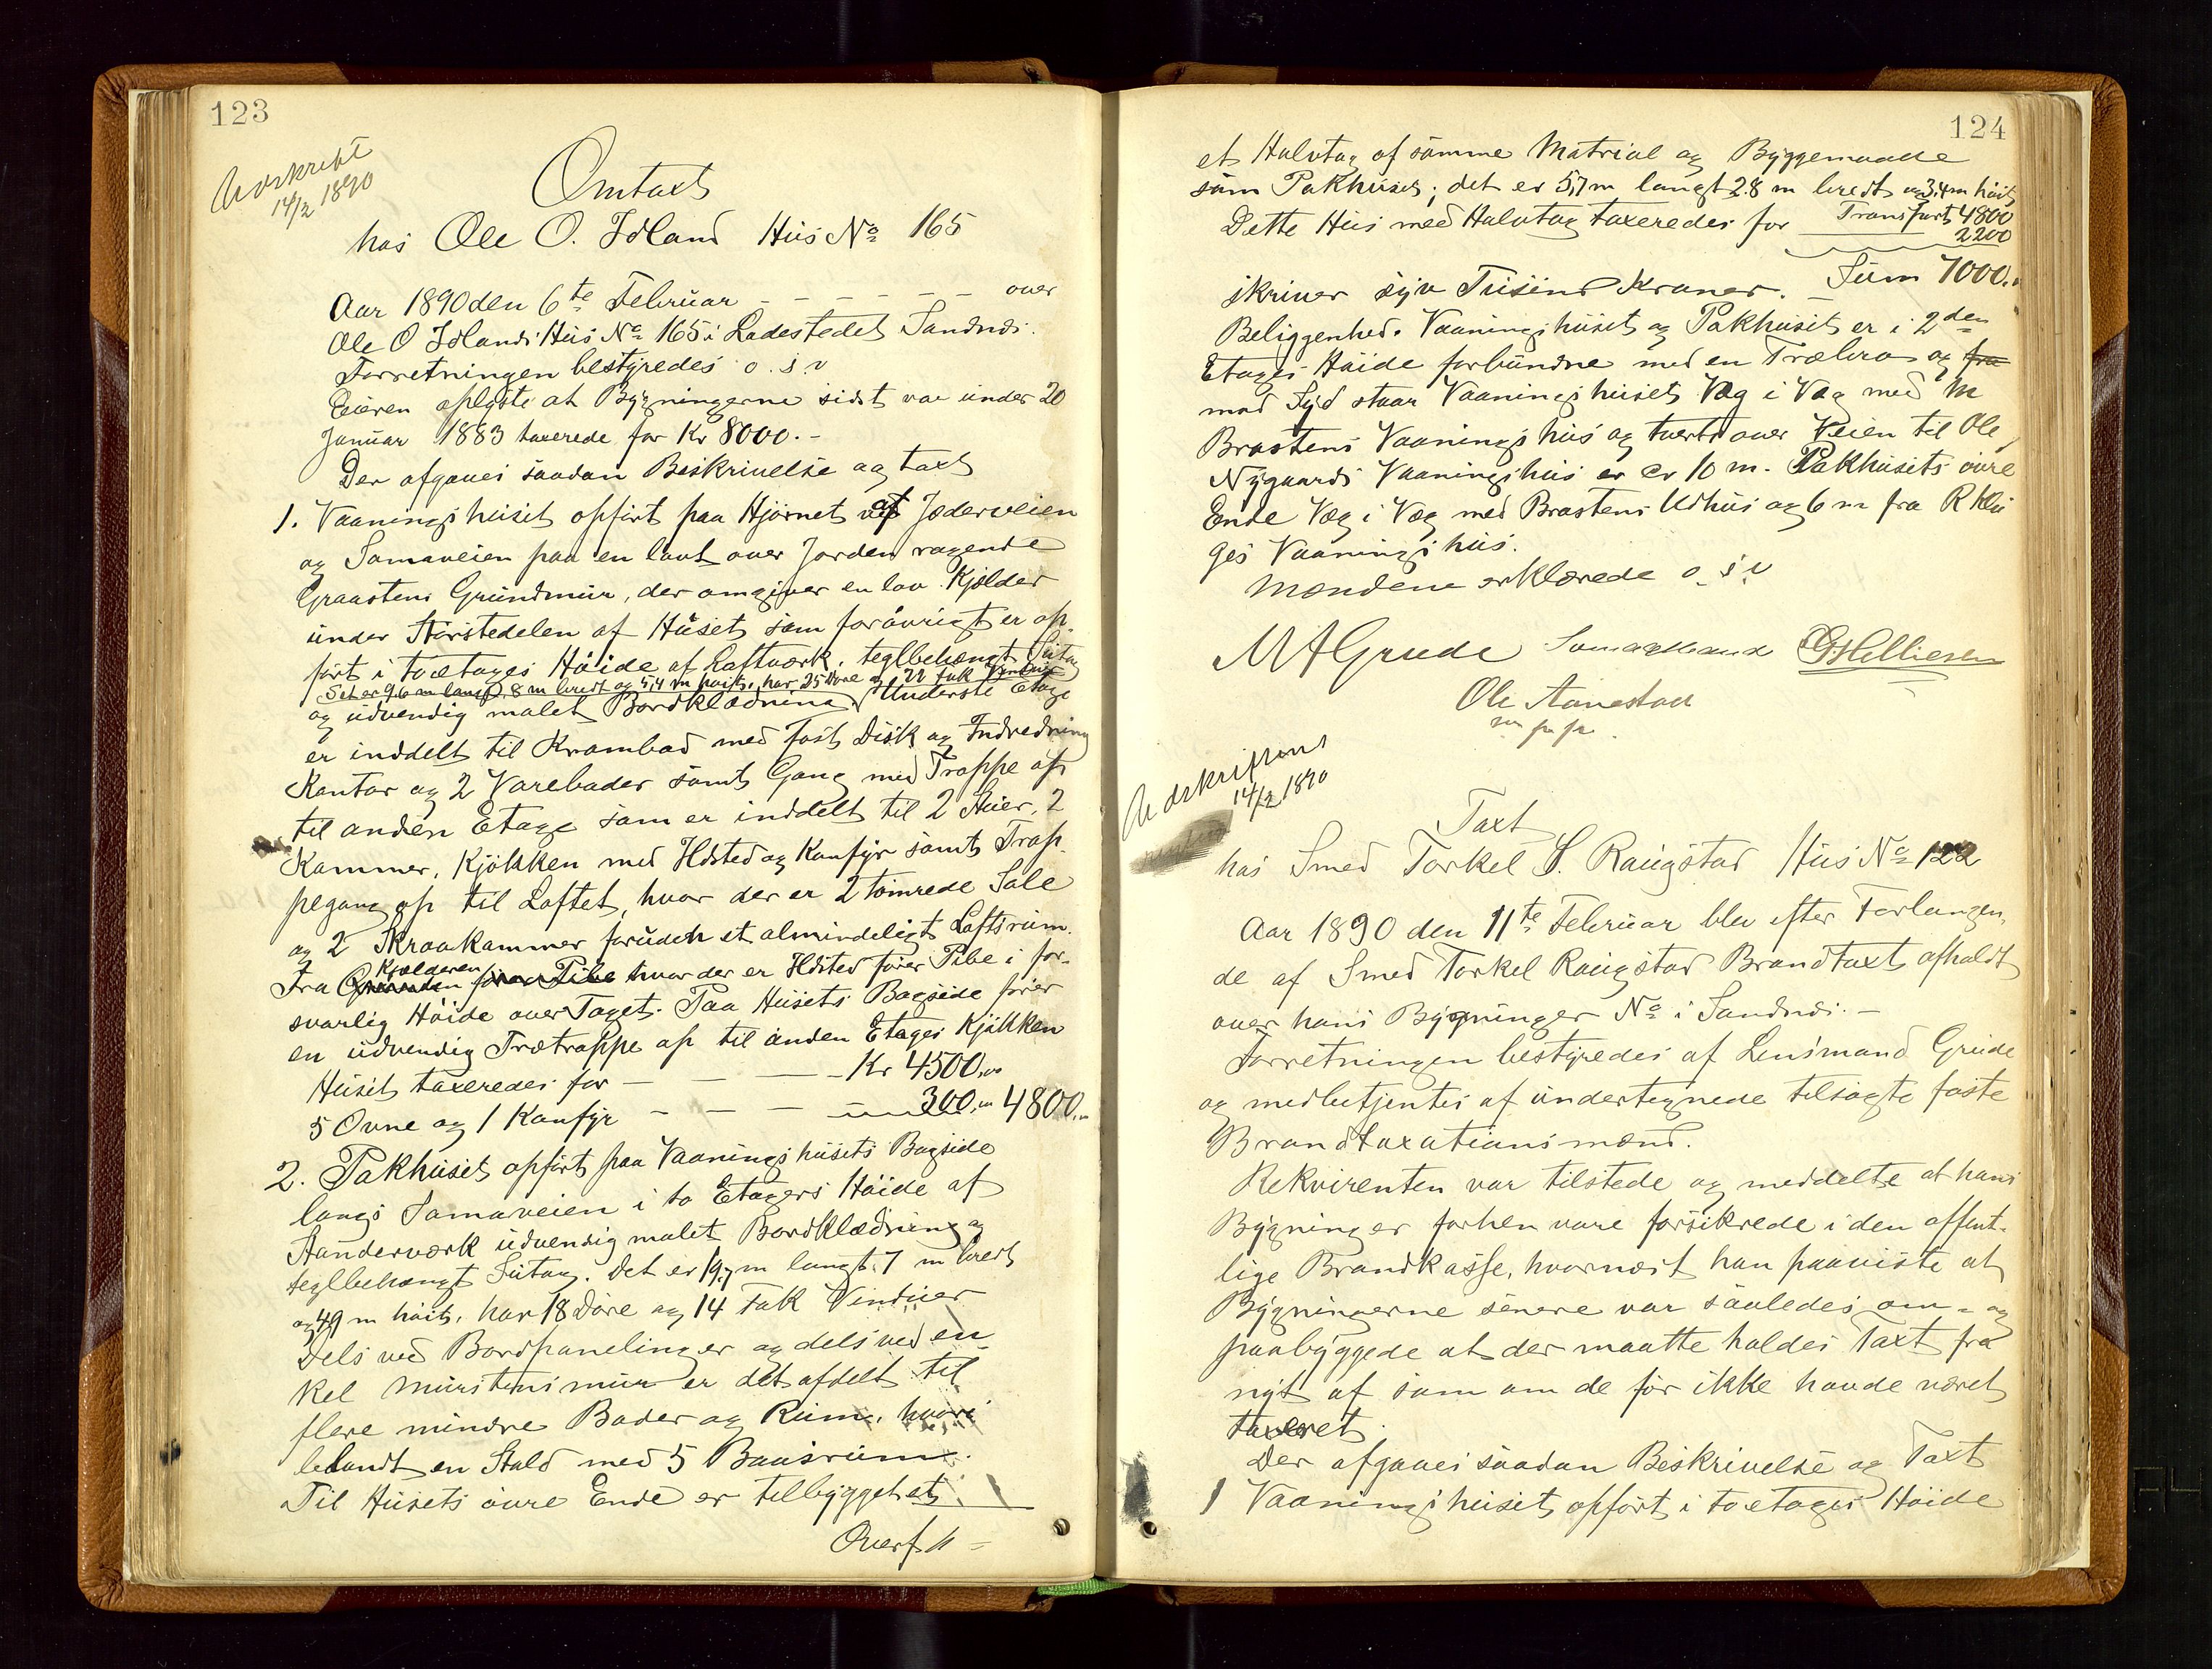 123
Udskrift
14/2 1890
Omtaxt
hos Ole O. Idland Hus No 165
Aar 1890 den 6te Februar - - - - - - over
Ole O Idlands Hus No 165 i Ladestedet Sandnds.
Forretningen bestyredes o. s. v
Eieren oplyste at Bygningerne sidst var under 20
Januar 1883 taxerede for Kr 8000. -
Der afgaves saadan Beskrivelse og taxt
1. Vaaningshuset opført paa Hjørnet af Jæderveien
og Somaveien paa en lavt over Jorden ragende
Graastens Grundmur, der omgiver en lav Kjælder
under Størstedelen af Huset som forøvrigt er op-
ført i toetages Høide af Laftværk, teglbehængt Sutag
Det er 9,6 m langt, 8 m bredt og 5,4 m høit, har 25 Døre og 22 Fak Vinduer
og udvendig malet Bordklædning Underste Etage
er inddelt til Krambod med fast Disk og Indredning
Kontor og 2 Vareboder samt Gang med Trappe op
til anden Etage som er inddelt til 2 Stuer, 2
Kammer, Kjøkken med Ildsted og Komfyr samt Trap-
pegang op til Loftet, hvor der er 2 tømrede Sale
og 2 Skraakammer foruden et almindeligt Loftsrum.
Fra Grunden Kjælderen fører Pibe hvor der er Ildsted fører Pibe i for-
svarlig Høide over Taget. Paa Husets Bagside fører
en udvendig Trætrappe op til anden Etages Kjøkken
Huset taxeredes for - - - - Kr 4500,00
5 Ovne og 1 Komfyr - - - 300,00 4800,00
2. Pakhuset opført paa Vaaningshusets Bagside
langs Somaveien i to Etagers Høide af
Standerværk udvendig malet Bordklædning og
teglbehængt Sutag. Det er 19,7 m langt, 7 m bredt
og 4,9 m høit, har 18 Døre og 14 Fak Vinduer
Dels ved Bordpanelinger og dels ved en-
kel Murstensmur er det afdelt til
flere mindre Boder og Rum, hvori
blandt en Stald med 5 Baasrum.
Til Husets øvre Ende er tilbygget et
Overf //-
124
et Halvtag af samme Matrial og Byggemaade
som Pakhuset; det er 5,7 m langt 2.8 m bredt og 3,4 m høit
Dette Hus med Halvtag taxeredes for Transport 4800
2200
skriver syv Tusind Kroner. Sum 7000,00
Beliggenhed. Vaaningshuset og Pakhuset er i 2den
Etages Høide forbundne med en Træbro og fra
mod Syd staar Vaaningshuset Væg i Væg med M
Brastens Vaaningshus og tverts over Veien til Ole
Nygaards Vaaningshus er cr 10 m. Pakhusets øvre
Ende Væg i Væg med Brastens Udhus og 6 m fra R Klu
ges Vaaningshus.
Mændene erklærede o. s. v
M A Grude
Ole Aanestad
m p p
Udskrifsens
14/2 1890
Taxt
hos Smed Torkel S. Raugstad Hus No 122
Aar 1890 den 11te Februar blev efter Forlangen-
de af Smed Torkel Raugstad Brandtaxt afholdt
over hans Bygninger No i Sandnds. -
Forretningen bestyredes af Lensmand Grude
og medbetjentes af undertegnede tilsagte faste
Brandtaxationsmænd.
Rekvirenten var tilstede og meddelte at hans
Bygninger forhen vare forsikrede i den offent-
lige Brandkasse, hvornæst han paaviste at
Bygningerne senere var saaledes om- og
paabyggede at der maatte holdes Taxt fra
nyt af som om de før ikke havde været
taxeret.
Der afgaves saadan Beskrivelse og Taxt
1 Vaaningshuset opført i toetages Høide